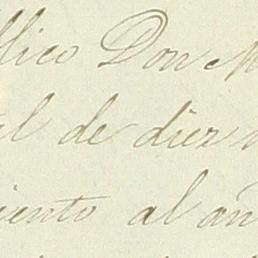 blico Don M
al de diez
iento al añ